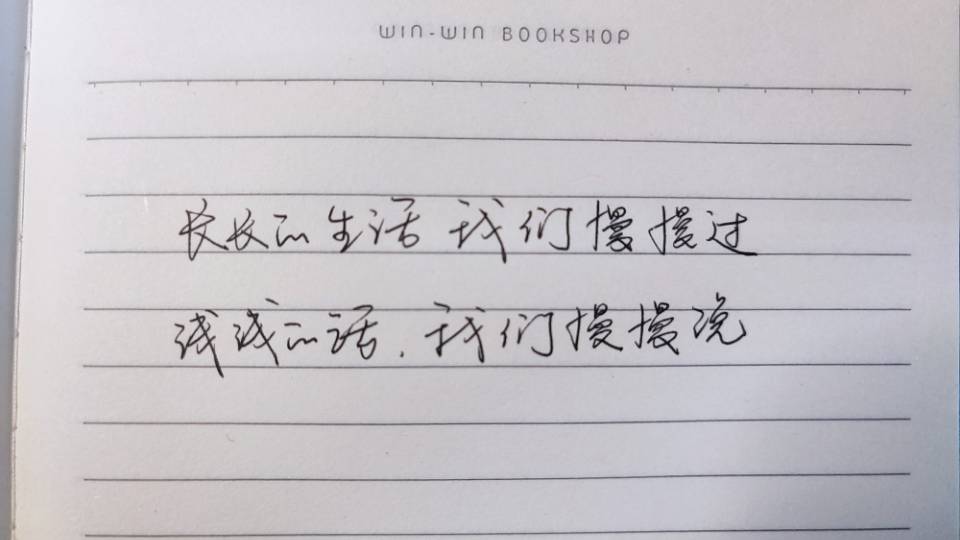 WIN-WIN BOOKSHOP
长长的生活 我们慢慢过
浅浅的话.我们慢慢说